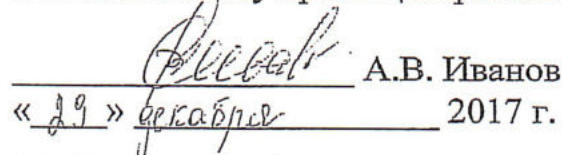 А.В. Иванов
« 29 » декабря 2017 г.